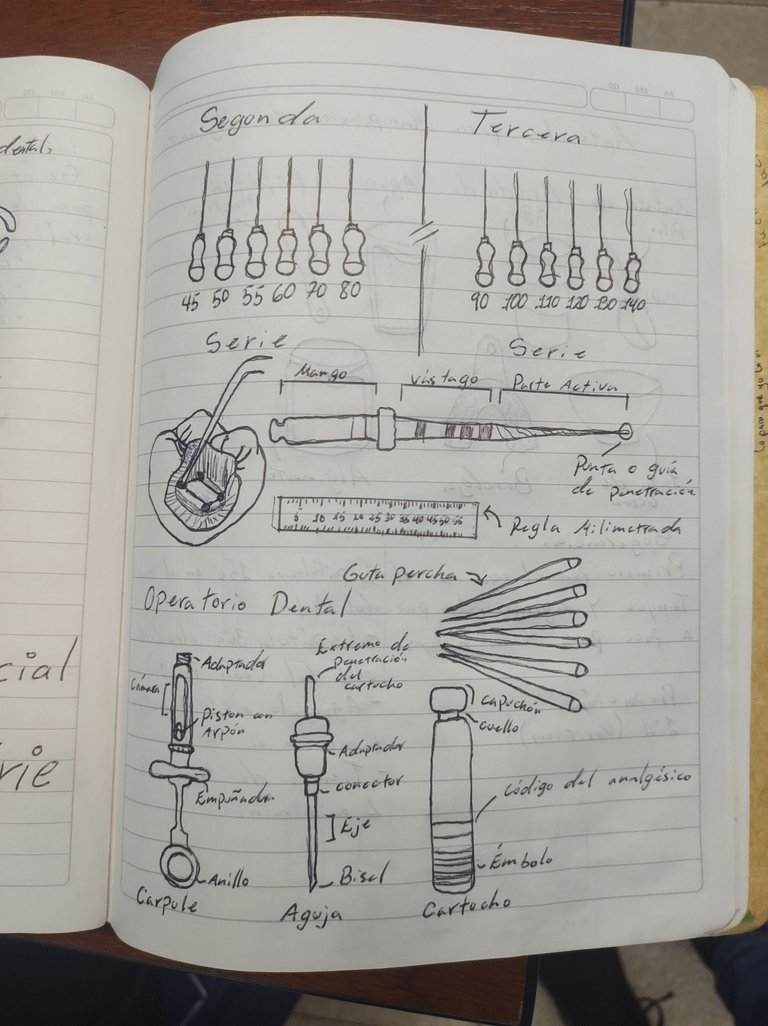 dental,
cial
rie
AA MM DD
Segunda
45 50 55 60 70 80
Serie
Tercera
90 100 110 120 130 140
Serie
Mango
Vástago
Parte Activa
Punta o guía
de penetración
5 10 15 20 25 30 35 40 45 50 55
Regla Milimetrada
Guta percha
Operatorio Dental
Adaptador
Cámara
Piston con
Arpón
Empuñadura
Anillo
Carpule
Extremo de
penetración
del
cartucho
Adaptador
conector
Eje
Bisel
Aguja
capuchón
cuello
código del analgésico
Émbolo
Cartucho